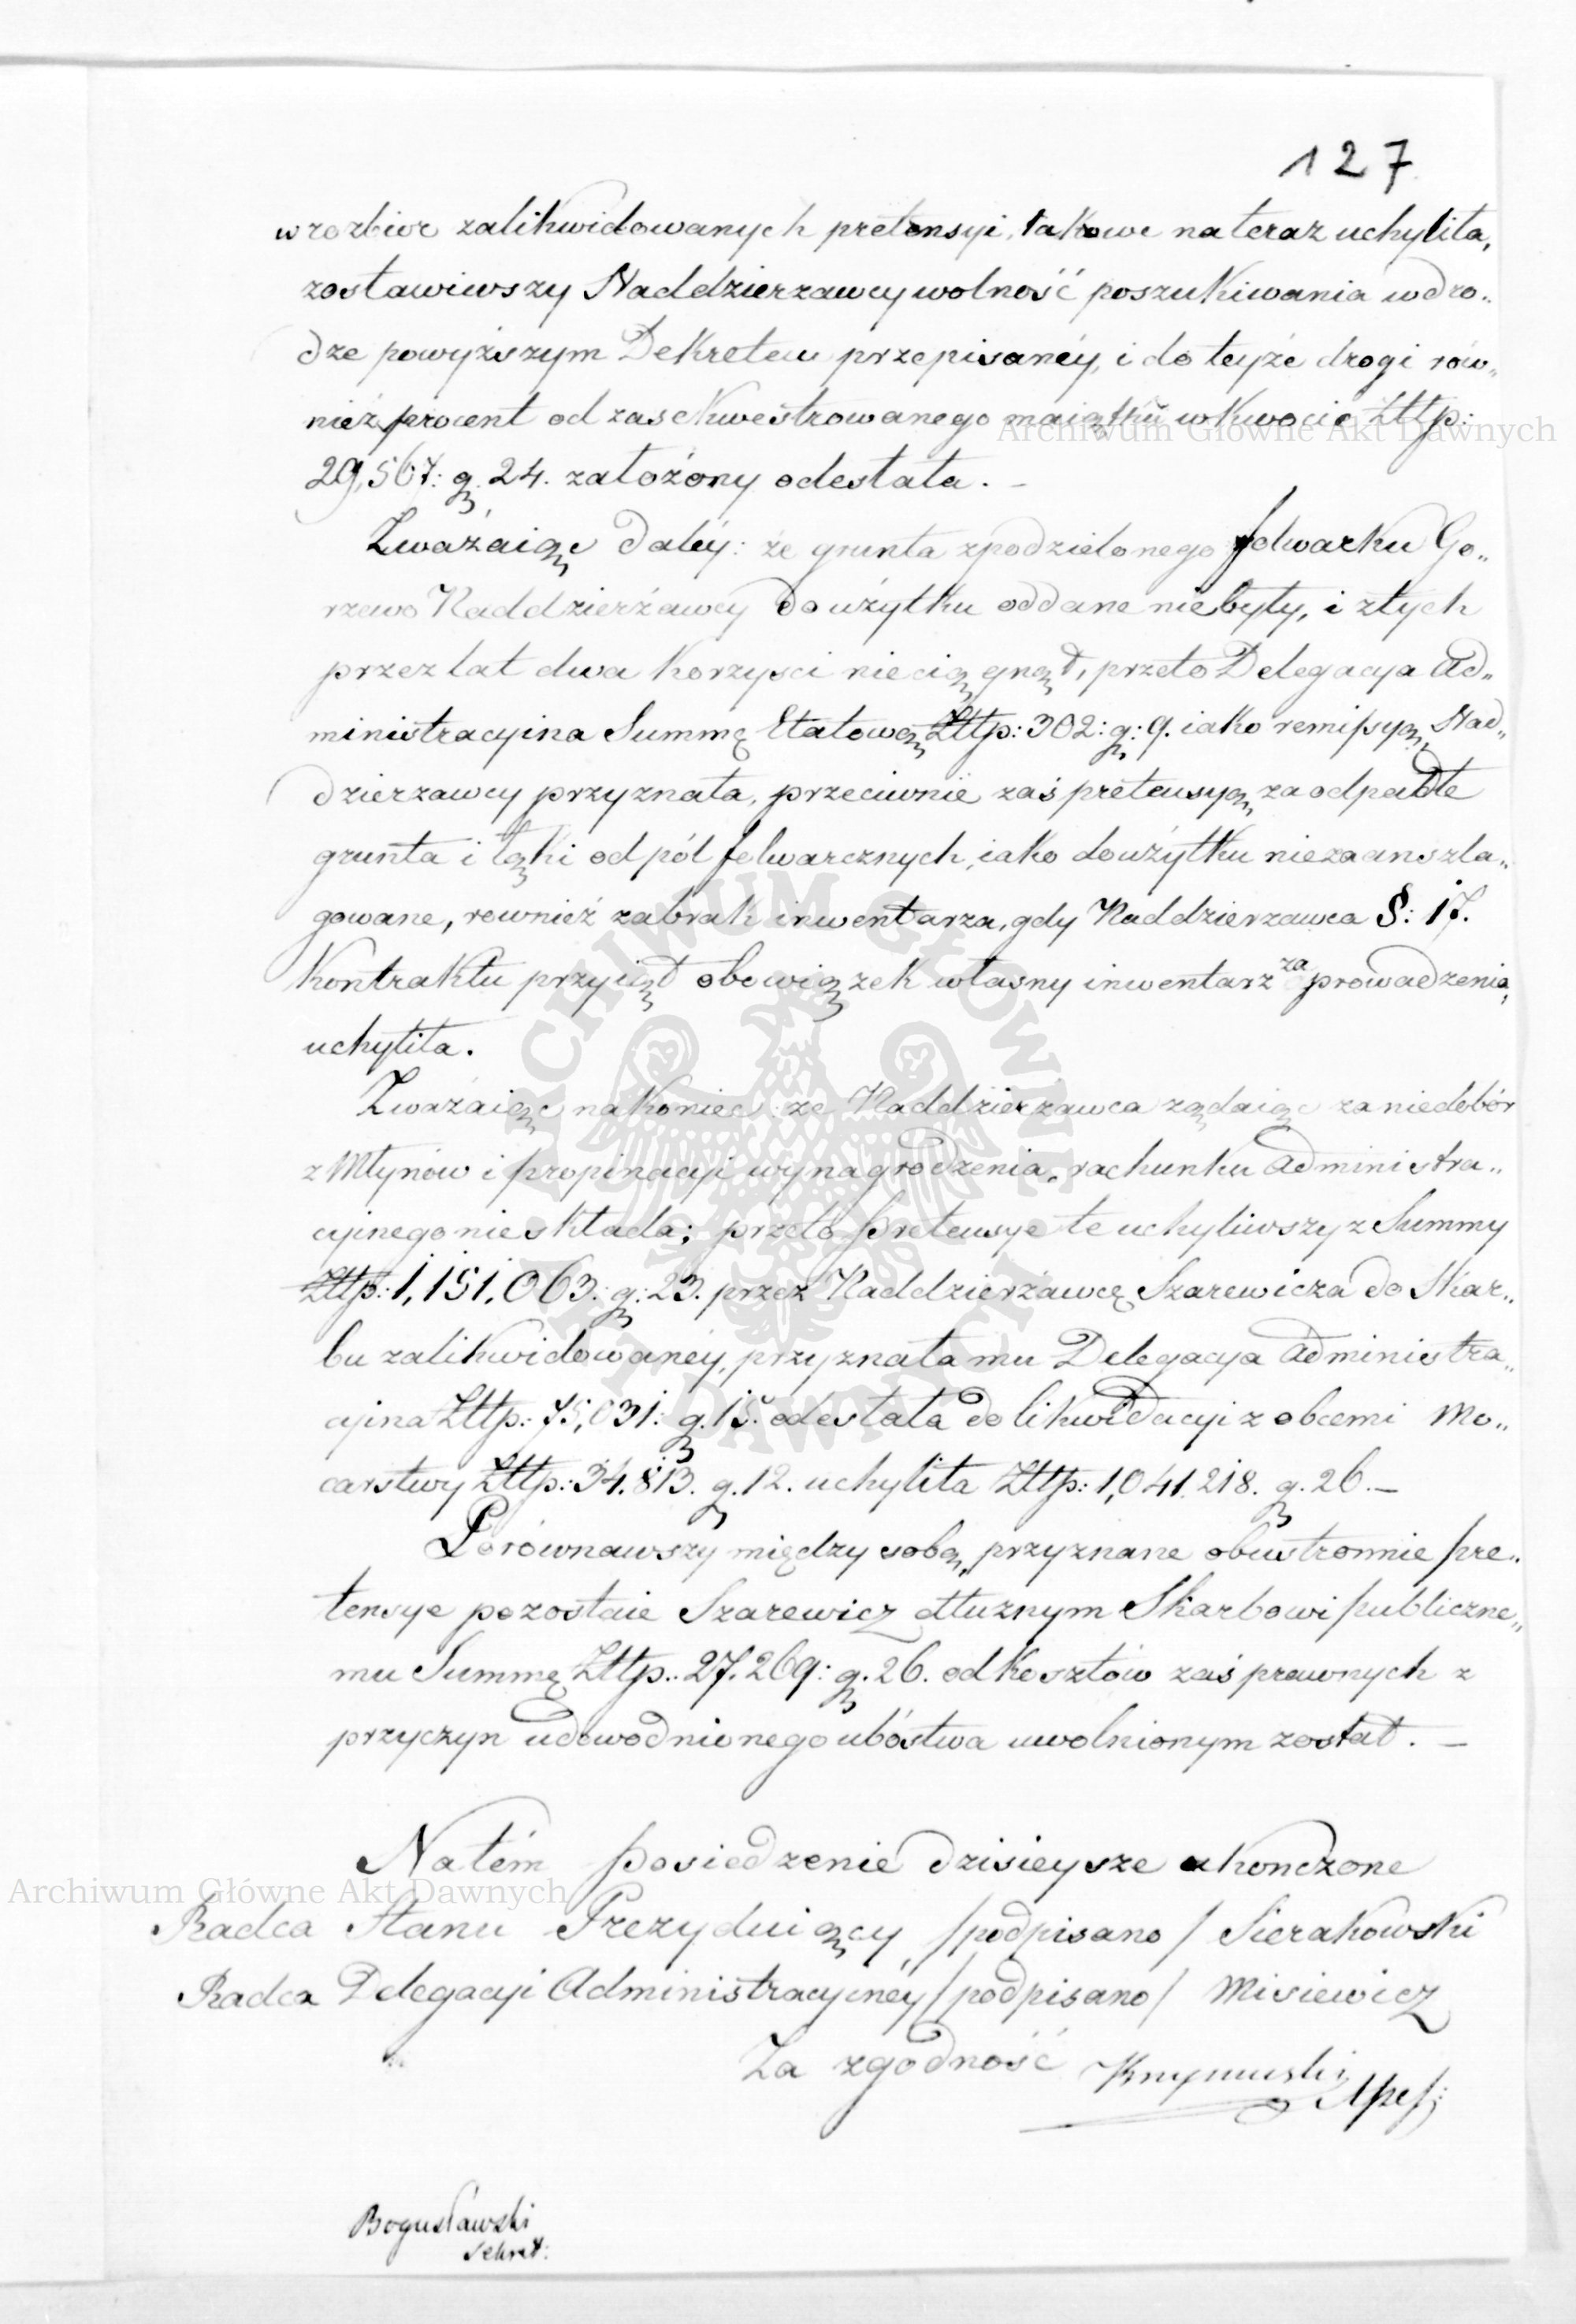 127
w rozbior zalikwidowanych pretensyi, takowe na teraz uchyliła,
zostawiwszy Naddzierzawcy wolność poszukiwania w dro„
dze powyższym Dekretem przepisanéy, i do teyże drogi rów„
nież procent od zasekwestrowanego maiątku w kwocie Złttp:
29,567: g. 24. założony odesłała. –
Zważaiąc daléy: że grunta z podzielonego folwarku Go„
rzewo Naddzierżawcy do użytku oddane nie były, i z tych
przez lat dwa korzyści nie ciągnął, przeto Delegacya Ad„
ministracyina Summę Etatową Złttp: 302: g: 9. iako remissyą Nad„
dzierzawcy przyznała, przeciwnie zaś pretensyą za odpadłe
grunta i łąki od pól folwarcznych, iako do użytku niezaanszla„
gowane, rewnież za brak inwentarza, gdy Naddzierzawca §: 17.
Kontraktu przyiął obowiązek własny inwentarz za prowadzenia,
uchyliła.
Zważaiąc nakoniec: ze Naddzierżawca żądaiąc za niedobór
z Młynów i propinacyi wynagrodzenia, rachunku administra„
cyjnego nie składa; przeto pretensye te uchyliwszy z Summy
Złttp: 1,151,063: g: 23. przez Naddzierżawcę Szarewicza do Skar„
bu zalikwidowanéy, przyznała mu Delegacya administra„
cyina Złttp: 75,031: g. 15. odesłała do likwidacyi z obcemi Mo„
carstwy Złttp: 34.813. g. 12. uchyliła Złttp: 1,041.218. g. 26. –
Porównawszy między sobą, przyznane obustronnie pre„
tensye pozostaie Szarewicz dłuznym Skarbowi publiczne„
mu Summę Złttp: 27.269: g. 26. od Kosztów zaś prawnych z
przyczyn udowodnionego ubóstwa uwolnionym został. –
Na tém posiedzenie dzisieysze ukonczone
Radca Stanu Prezyduiący /podpisano/ Sierakowski
Radca Delegacyi Administracyinéy /podpisano/ Misiewicz
Za zgodność
Bogusławski
Sekret:
Archiwum Główne Akt Dawnych
Archiwum Główne Akt Dawnych
ARCHIWUM GŁÓWNE AKT DAWNYCH